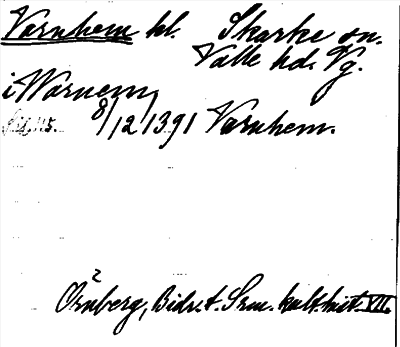 Varnhem kl. Skarke sn.
Valle hd. Vg.
i Warnem,
8/12 1391 Varnhem.
Örnberg, Bidr. t. Srm. kult. hist. VII.